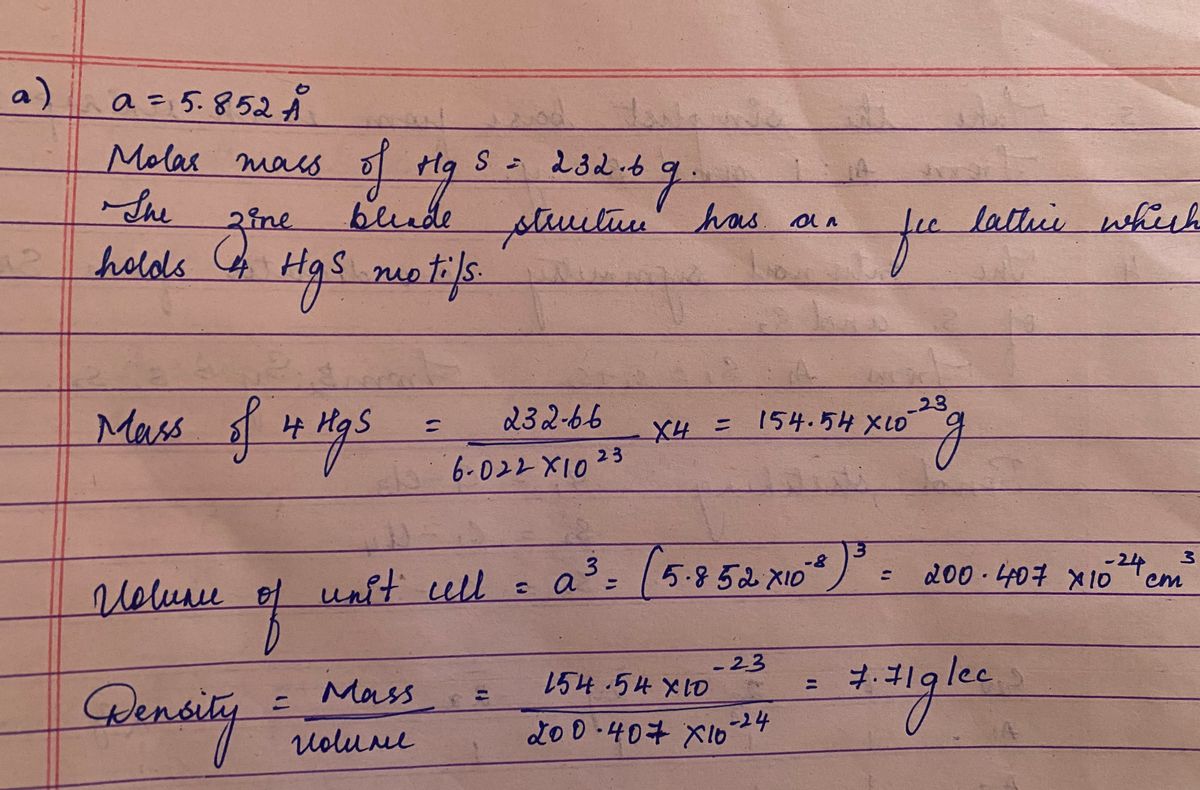 a) a = 5.852 Å
Molar mass of HgS = 232.6 g.
The zinc blende structure has an fcc lattice which
holds 4 HgS motifs.
Mass of 4 HgS = 232.66 / 6.022 × 10²³ × 4 = 154.54 × 10⁻²³ g
Volume of unit cell = a³ = (5.852 × 10⁻⁸)³ = 200.407 × 10⁻²⁴ cm³
Density = Mass / Volume = 154.54 × 10⁻²³ / 200.407 × 10⁻²⁴ = 7.71 g/cc